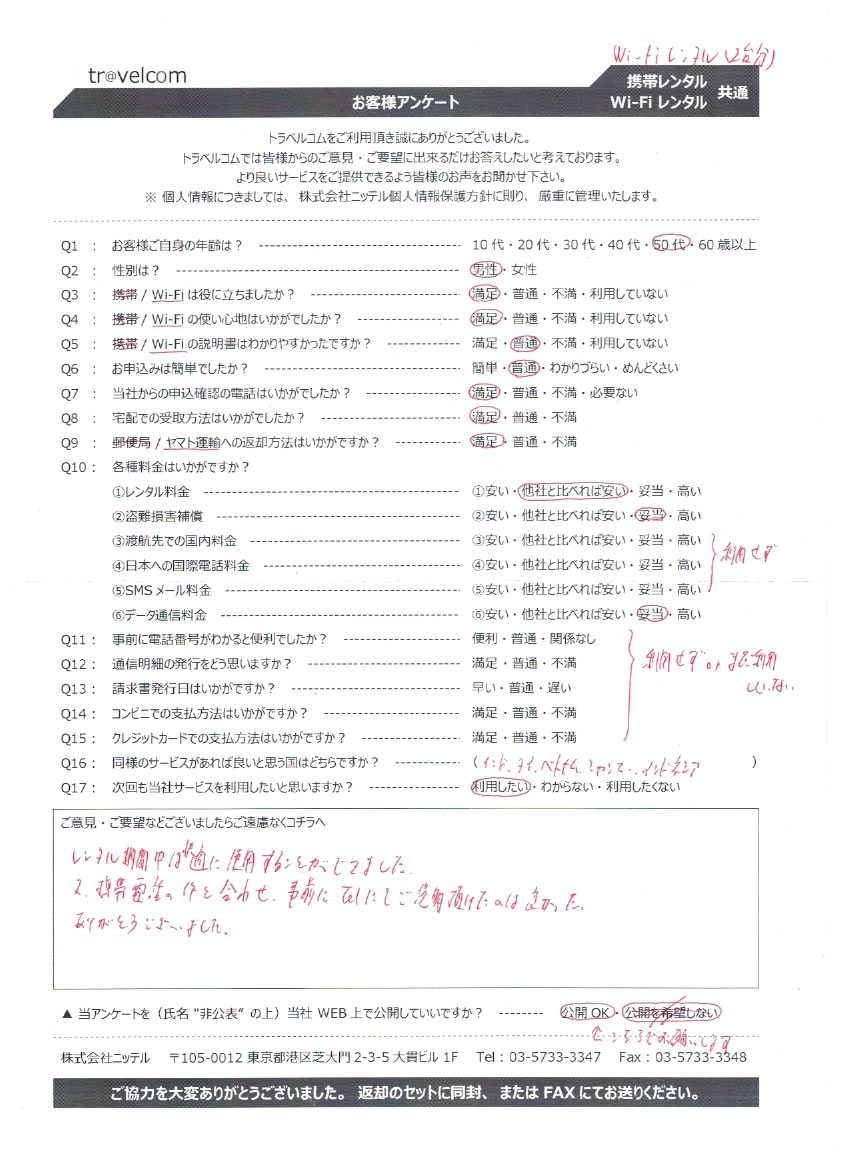 Wi-Fi レンタル(2台分)
tr@velcom
携帯レンタル
Wi-Fi レンタル 共通
お客様アンケート
トラベルコムをご利用頂き誠にありがとうございました。
トラベルコムでは皆様からのご意見・ご要望に出来るだけお答えしたいと考えております。
より良いサービスをご提供できるよう皆様のお声をお聞かせ下さい。
※ 個人情報につきましては、株式会社ニッテル個人情報保護方針に則り、厳重に管理いたします。
Q1 : お客様ご自身の年齢は? 10 代・20 代・30 代・40 代・50 代・60 歳以上
Q2 : 性別は? 男性・女性
Q3 : 携帯 / Wi-Fi は役に立ちましたか? 満足・普通・不満・利用していない
Q4 : 携帯 / Wi-Fi の使い心地はいかがでしたか? 満足・普通・不満・利用していない
Q5 : 携帯 / Wi-Fi の説明書はわかりやすかったですか? 満足・普通・不満・利用していない
Q6 : お申込みは簡単でしたか? 簡単・普通・わかりづらい・めんどくさい
Q7 : 当社からの申込確認の電話はいかがでしたか? 満足・普通・不満・必要ない
Q8 : 宅配での受取方法はいかがでしたか? 満足・普通・不満
Q9 : 郵便局 / ヤマト運輸への返却方法はいかがですか? 満足・普通・不満
Q10 : 各種料金はいかがですか?
①レンタル料金 ①安い・他社と比べれば安い・妥当・高い
②盗難損害補償 ②安い・他社と比べれば安い・妥当・高い
③渡航先での国内料金 ③安い・他社と比べれば安い・妥当・高い
利用せず
④日本への国際電話料金 ④安い・他社と比べれば安い・妥当・高い
⑤SMS メール料金 ⑤安い・他社と比べれば安い・妥当・高い
⑥データ通信料金 ⑥安い・他社と比べれば安い・妥当・高い
Q11 : 事前に電話番号がわかると便利でしたか? 便利・普通・関係なし
Q12 : 通信明細の発行をどう思いますか? 満足・普通・不満
利用せず or まだ利用
していない
Q13 : 請求書発行日はいかがですか? 早い・普通・遅い
Q14 : コンビニでの支払方法はいかがですか? 満足・普通・不満
Q15 : クレジットカードでの支払方法はいかがですか? 満足・普通・不満
Q16 : 同様のサービスがあれば良いと思う国はどちらですか? (インド、タイ、ベトナム、ミャンマー、インドネシア)
Q17 : 次回も当社サービスを利用したいと思いますか? 利用したい・わからない・利用したくない
ご意見・ご要望などございましたらご遠慮なくコチラへ
レンタル期間中は快適に使用することができました。
又、携帯電話の件と合わせ、事前に Telにてご説明頂けたのは良かった。
ありがとうございました。
▲ 当アンケートを(氏名 "非公表" の上)当社 WEB 上で公開していいですか? 公開 OK・公開を希望しない
↑こちらでお願いします
株式会社ニッテル 〒105-0012 東京都港区芝大門 2-3-5 大貫ビル 1F Tel : 03-5733-3347 Fax : 03-5733-3348
ご協力を大変ありがとうございました。返却のセットに同封、または FAX にてお送りください。